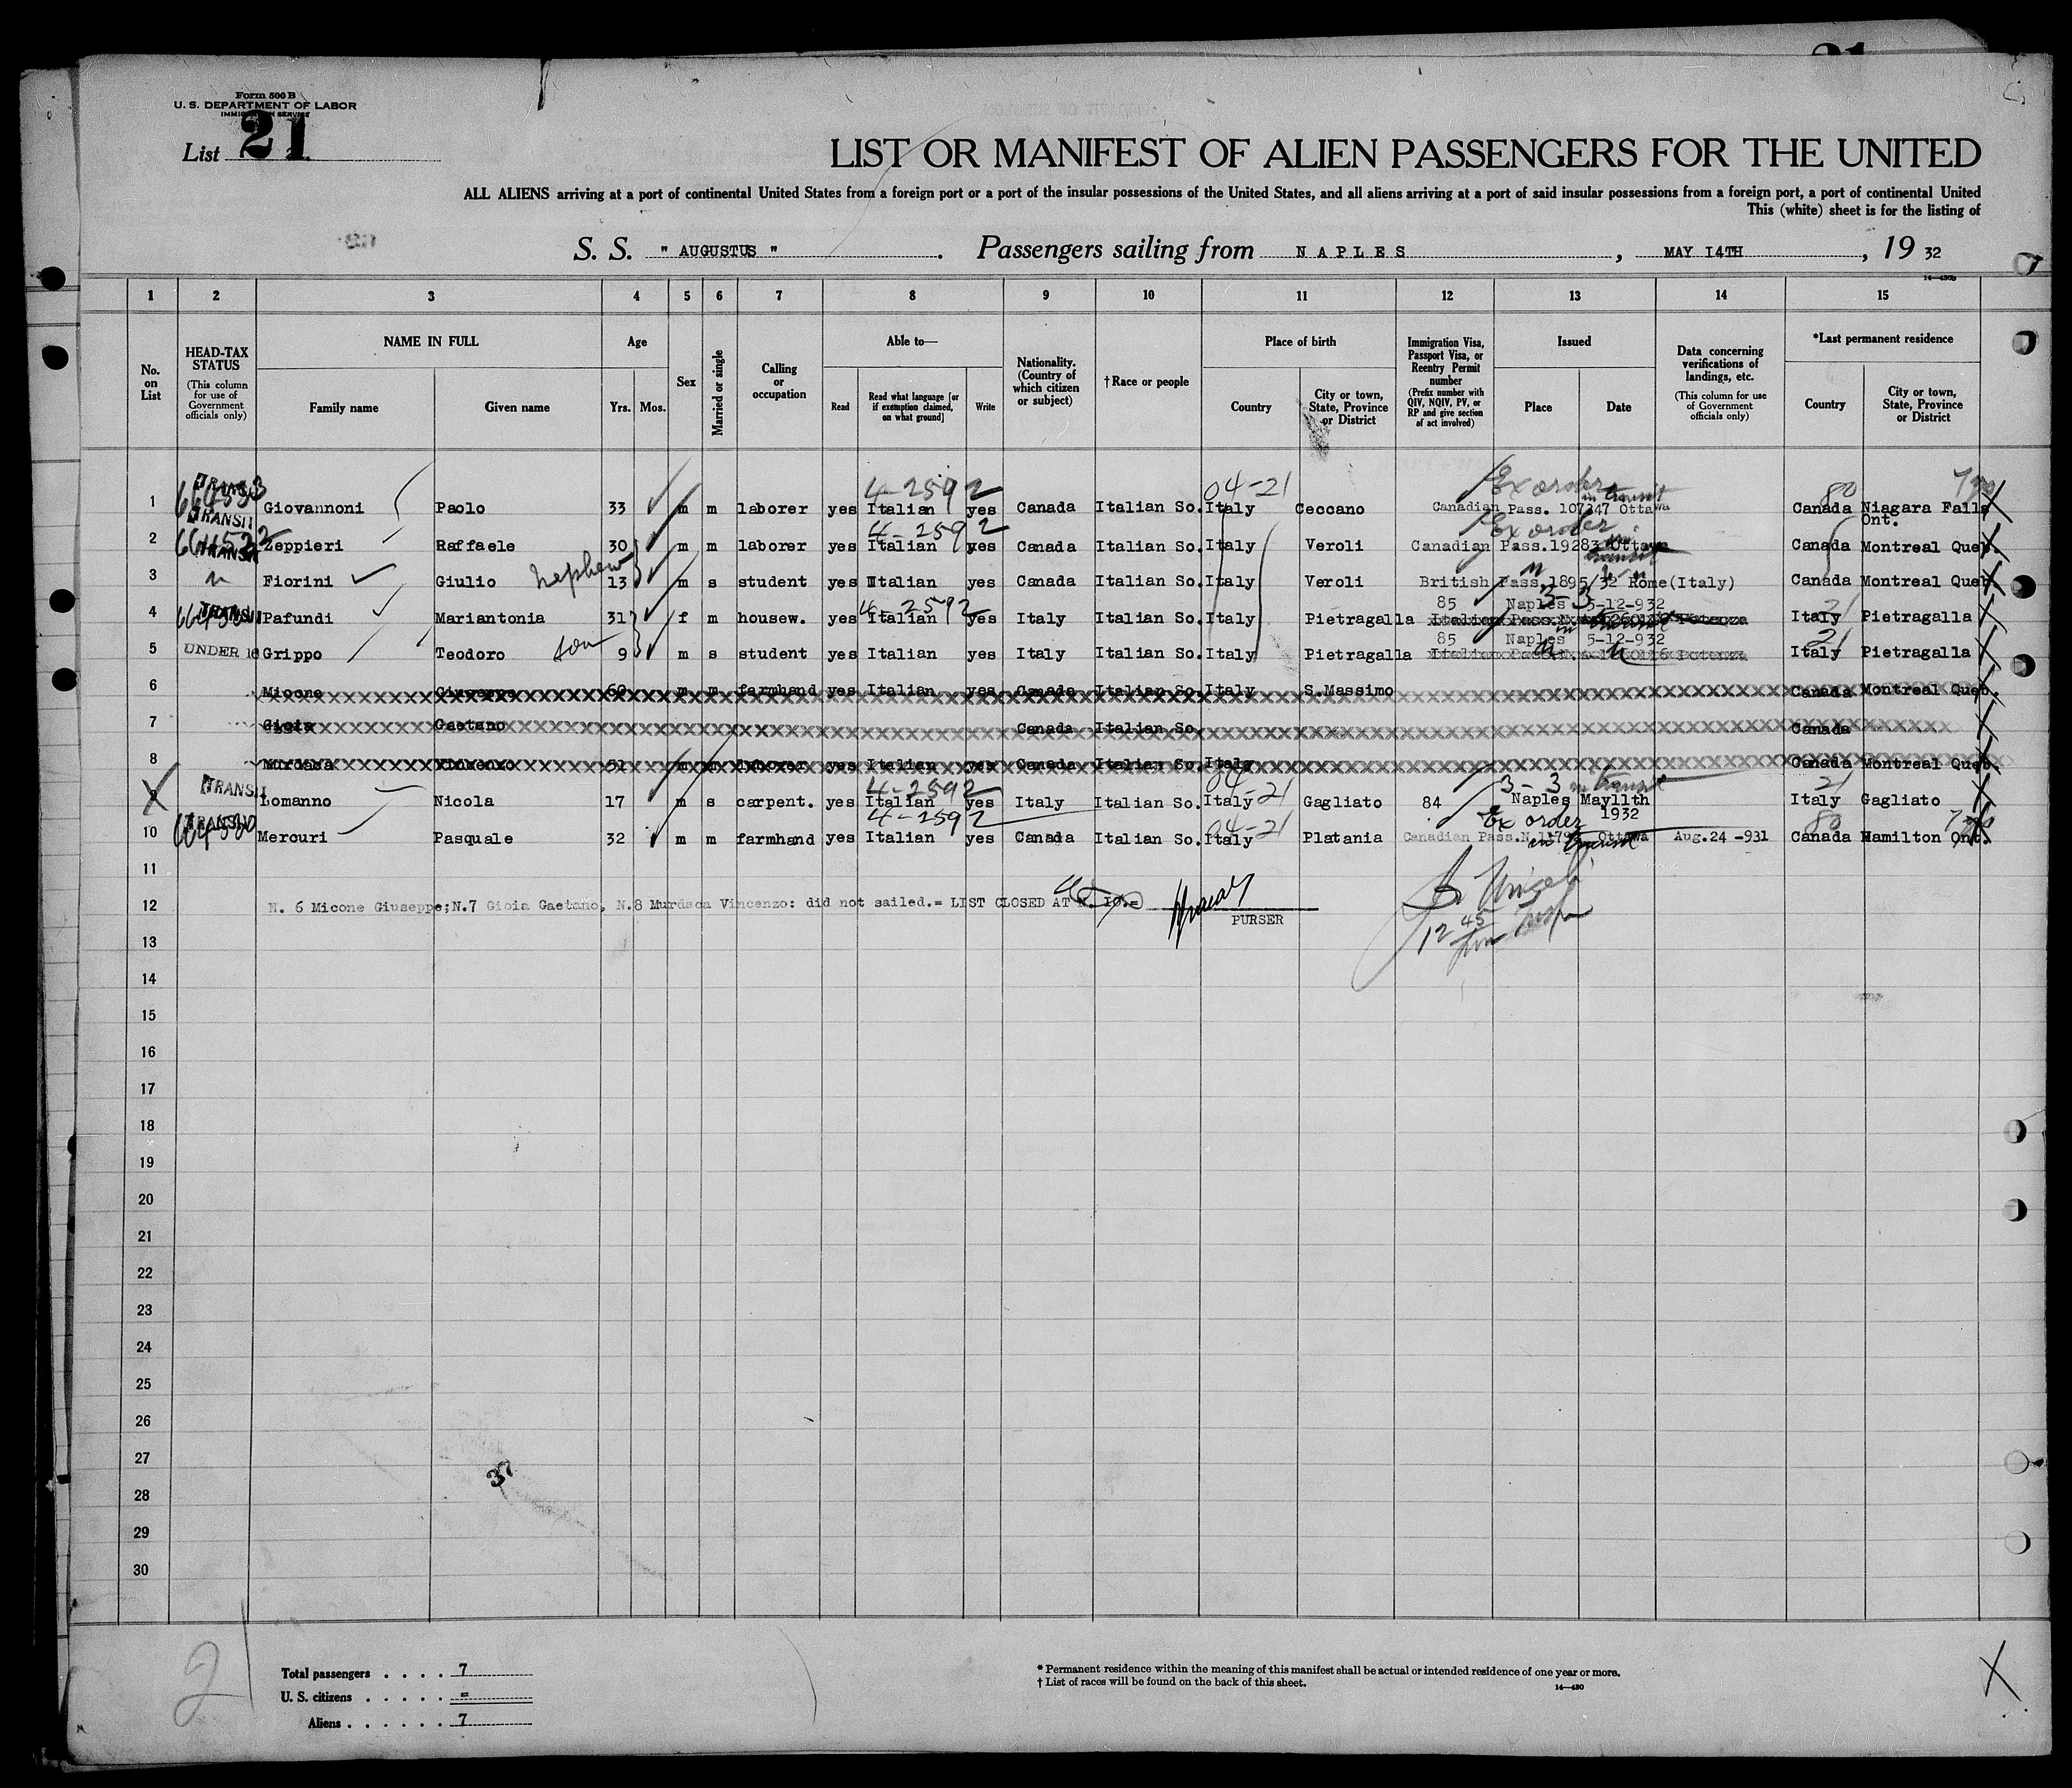 21
Form 500 B
U. S. DEPARTMENT OF LABOR
IMMIGRATION SERVICE
List 21
LIST OR MANIFEST OF ALIEN PASSENGERS FOR THE UNITED
ALL ALIENS arriving at a port of continental United States from a foreign port or a port of the insular possessions of the United States, and all aliens arriving at a port of said insular possessions from a foreign port, a port of continental United
This (white) sheet is for the listing of
S. S. " AUGUSTUS " . Passengers sailing from N A P L E S , MAY I4TH , 19 32
14—430b
1 2 3 4 5 6 7 8 9 10 11 12 13 14 15
No. on List
HEAD-TAX STATUS (This column for use of Government officials only)
NAME IN FULL
Family name Given name
Age
Yrs. Mos.
Sex
Married or single
Calling or occupation
Able to—
Read
Read what language [or if exemption claimed, on what ground]
Write
Nationality. (Country of which citizen or subject)
† Race or people
Place of birth
Country
City or town, State, Province or District
Immigration Visa, Passport Visa, or Reentry Permit number (Prefix number with QIV, NQIV, PV, or RP and give section of act involved)
Issued
Place Date
Data concerning verifications of landings, etc. (This column for use of Government officials only)
*Last permanent residence
Country
City or town, State, Province or District
TRANSIT 4-2592 04-21 Ex order in transit 80
1 Giovannoni Paolo 33 m m laborer yes Italian yes Canada Italian So. Italy Ceccano Canadian Pass. 107347 Ottawa Canada Niagara Falls Ont.
TRANSIT 4-2592 Ex order
2 Zeppieri Raffaele 30 m m laborer yes Italian yes Canada Italian So. Italy Veroli Canadian Pass.19283 Ottawa in transit Canada Montreal Queb.
TRANSIT
3 " Fiorini Giulio nephew 13 m s student yes Italian yes Canada Italian So. Italy Veroli British Pass.1895/32 Rome(Italy) Canada Montreal Queb.
TRANSIT 4-2592 85 Naples 3-3 5-12-932 21
4 Pafundi Mariantonia 31 f m housew. yes Italian yes Italy Italian So. Italy Pietragalla Italy Pietragalla
85 Naples 5-12-932 21
5 UNDER 16 Grippo Teodoro son 9 m s student yes Italian yes Italy Italian So. Italy Pietragalla Italy Pietragalla
6 Micone Giuseppe 60 m m farmhand yes Italian yes Canada Italian So. Italy S.Massimo Canada Montreal Queb.
7 Gioia Gaetano Canada Italian So. Canada
8 Murdaca Vincenzo 51 m m laborer yes Italian yes Canada Italian So. Italy Canada Montreal Queb.
TRANSIT 4-2592 04-21 3-3 in transit 21
9 Lomanno Nicola 17 m s carpent. yes Italian yes Italy Italian So. Italy Gagliato 84 Naples May11th 1932 Italy Gagliato
TRANSIT 4-2592 04-21 Ex order 80
10 Mercuri Pasquale 32 m m farmhand yes Italian yes Canada Italian So. Italy Platania Canadian Pass. in transit Ottawa Aug.24 -931 Canada Hamilton Ont.
11
12 N. 6 Micone Giuseppe;N.7 Gioia Gaetano, N.8 Murdaca Vincenzo: did not sailed.= LIST CLOSED AT N. IO.=
PURSER
12 45
13
14
15
16
17
18
19
20
21
22
23
24
25
26
27
37
28
29
30
2
Total passengers . . . . 7
U. S. citizens . . . . . =
Aliens . . . . . . 7
* Permanent residence within the meaning of this manifest shall be actual or intended residence of one year or more.
† List of races will be found on the back of this sheet.
14—430
X